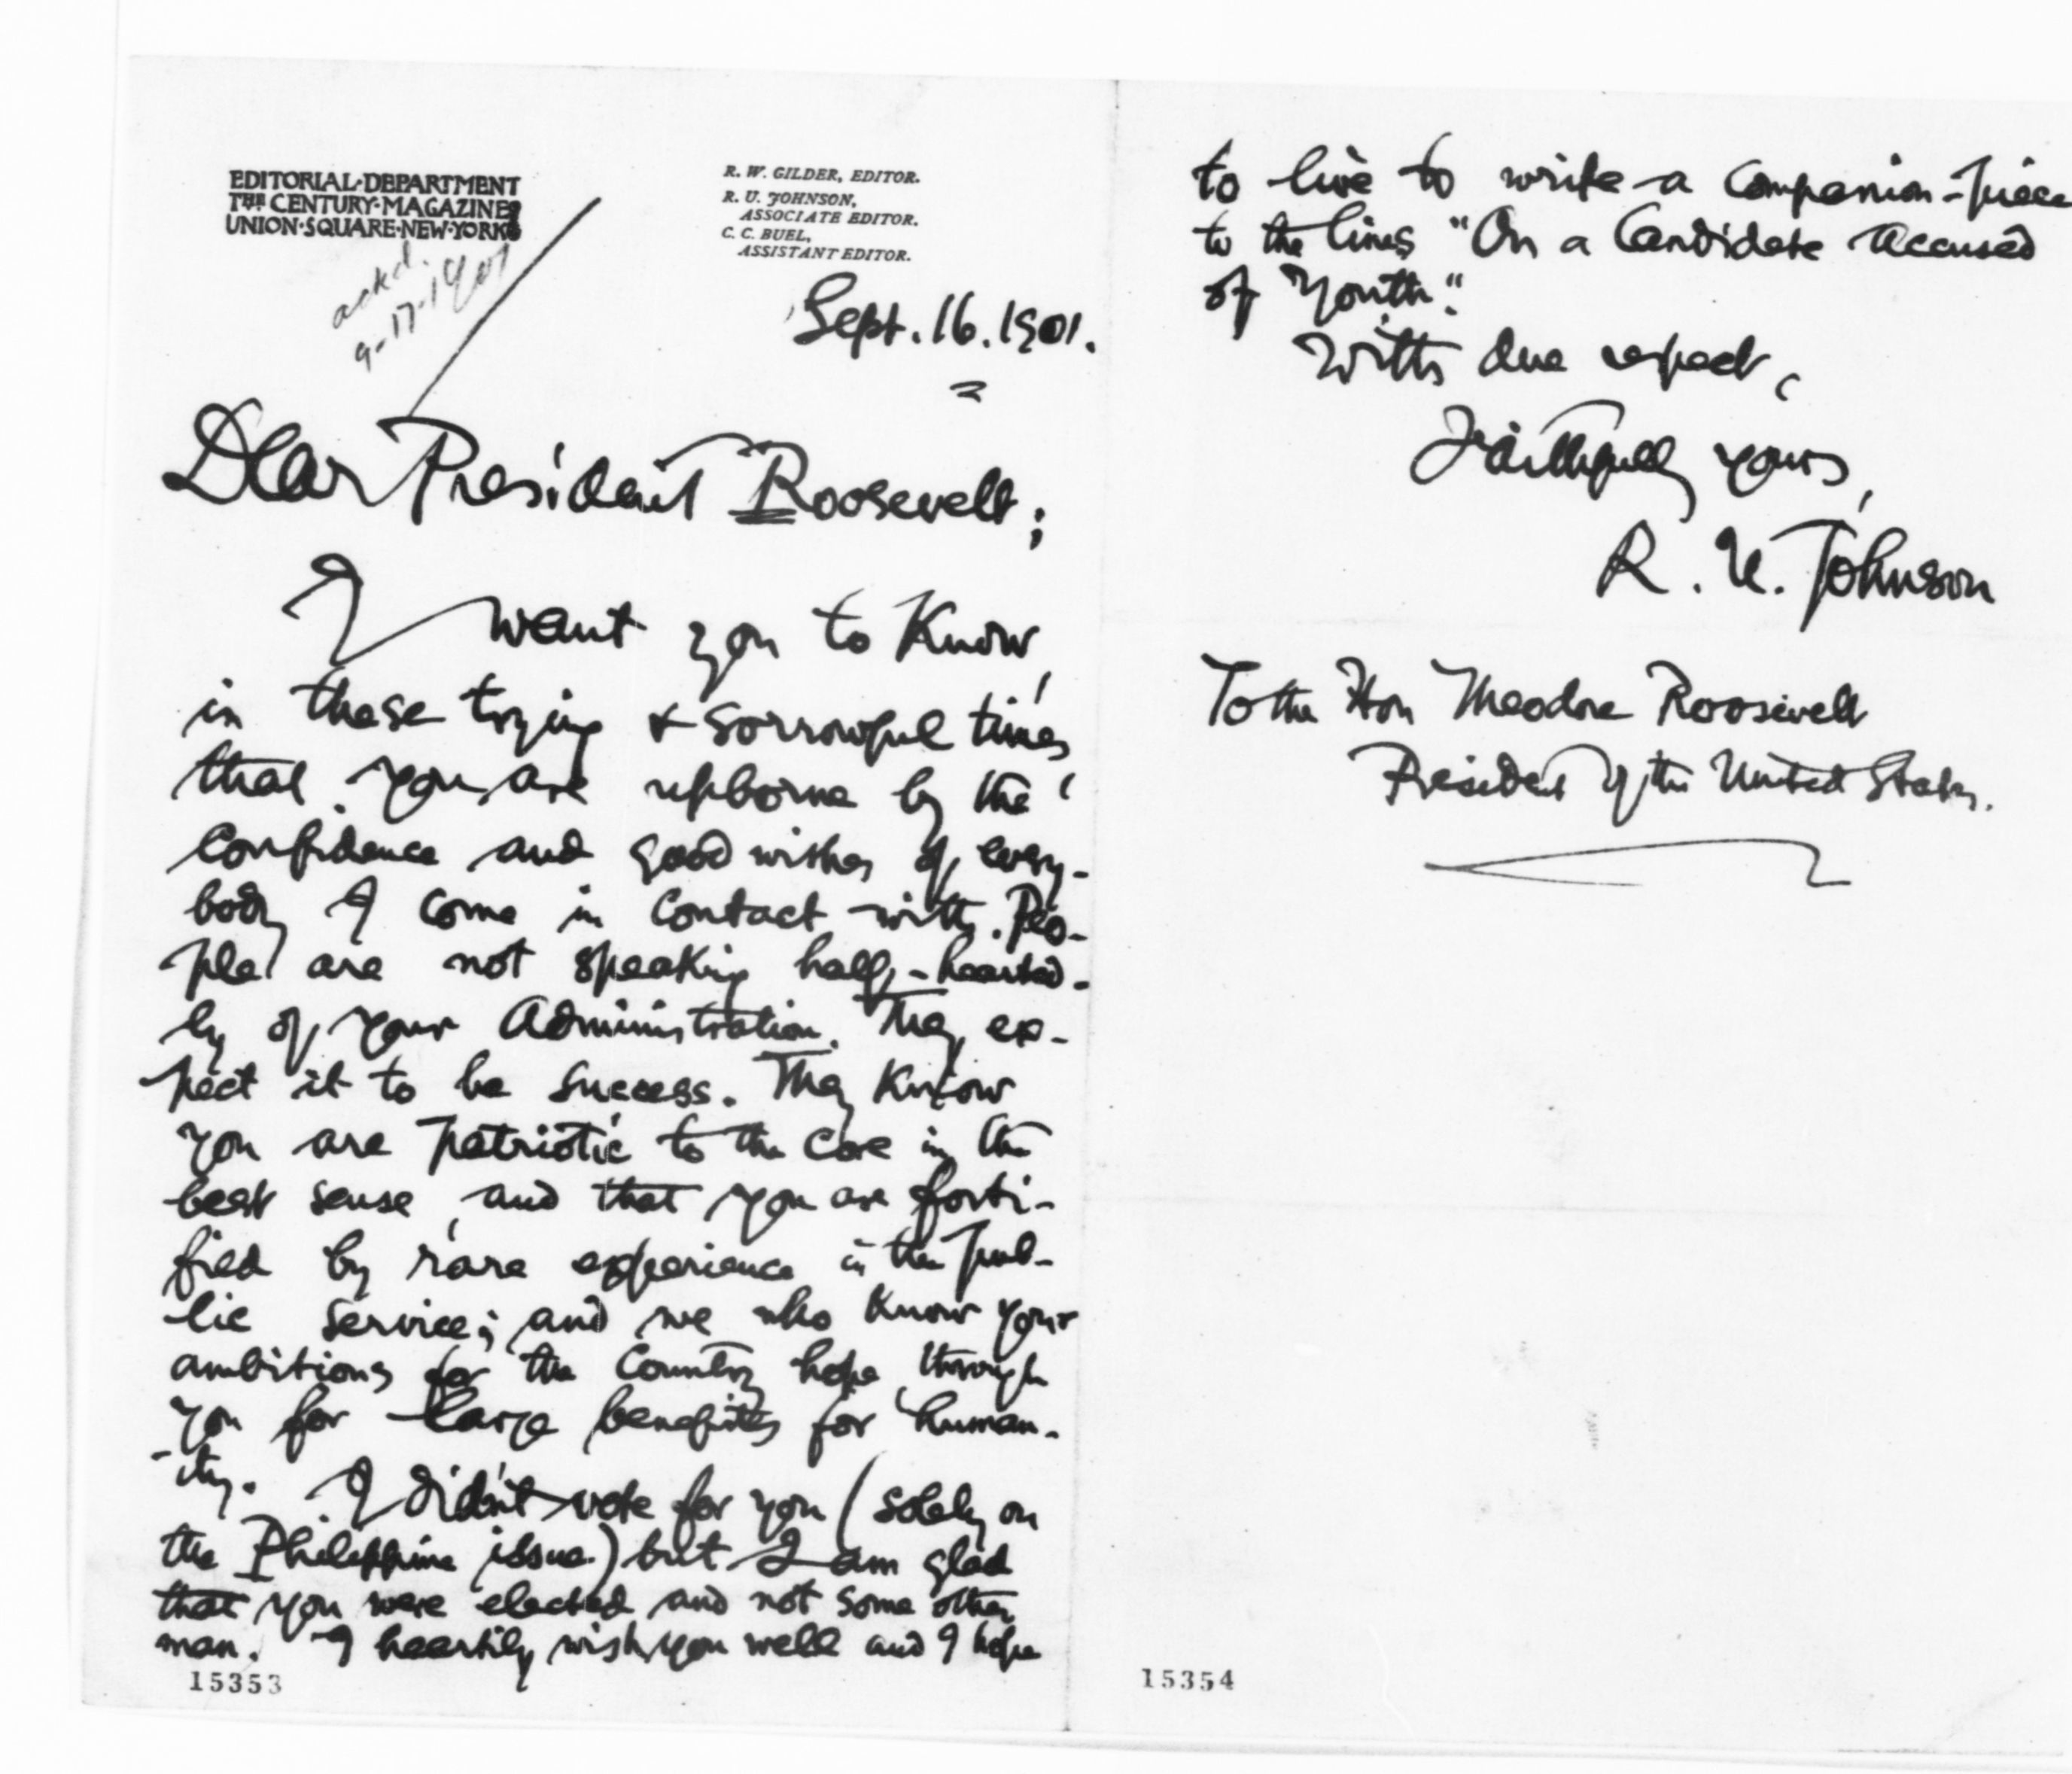 EDITORIAL·DEPARTMENT
THE CENTURY·MAGAZINE
UNION·SQUARE·NEW·YORK
R. W. GILDER, EDITOR.
R. U. JOHNSON,
ASSOCIATE EDITOR.
C. C. BUEL,
ASSISTANT EDITOR.
ackd.
9-17-1901
Sept. 16. 1901.
Dear President Roosevelt;
I want you to know,
in these trying & sorrowful times
that you are upborne by the
confidence and good wishes of every-
body I come in contact with. Peo-
ple are not speaking half-hearted-
ly of your Administration. They ex-
pect it to be success. They know
you are patriotic to the core in the
best sense, and that you are forti-
fied by rare experience in the pub-
lic service; and we who know your
ambitions for the country hope through
you for large benefits for human-
-ity. I didn't vote for you (solely on
the Philippine issue) but I am glad
that you were elected and not some other
man. I heartily wish you well and I hope
15353
to live to write a companion-piece
to the lines "On a Candidate Accused
of Youth."
With due respect,
Faithfully yours,
R. U. Johnson
To the Hon Theodore Roosevelt
President of the United States.
15354